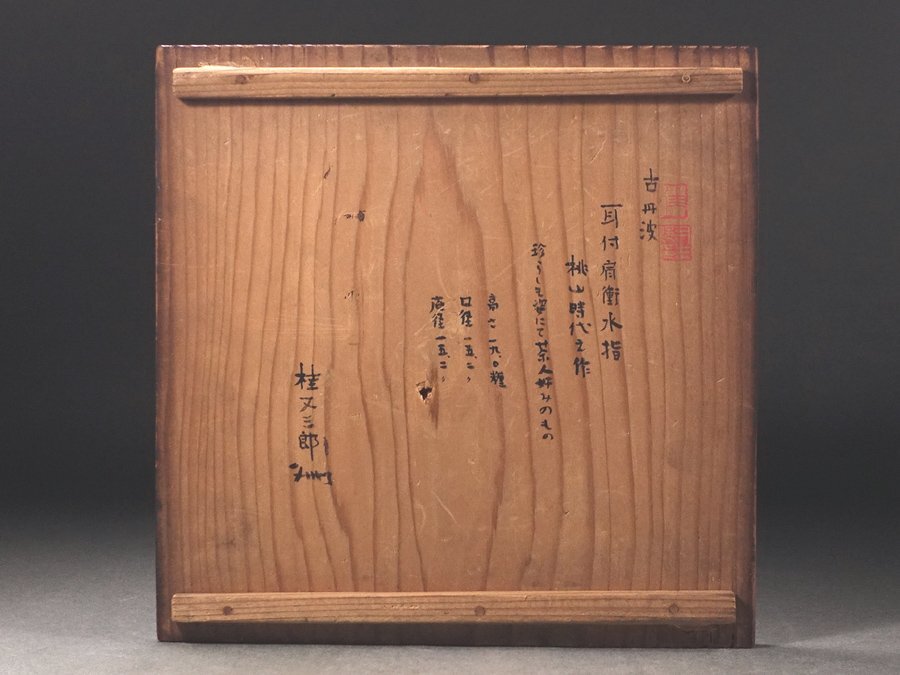 古丹波
耳付肩衝水指
桃山時代之作
珍らしき姿にて茶人好みのもの
高さ 一九.〇糎
口径 一五.二〃
底径 一五.二〃
桂又三郎